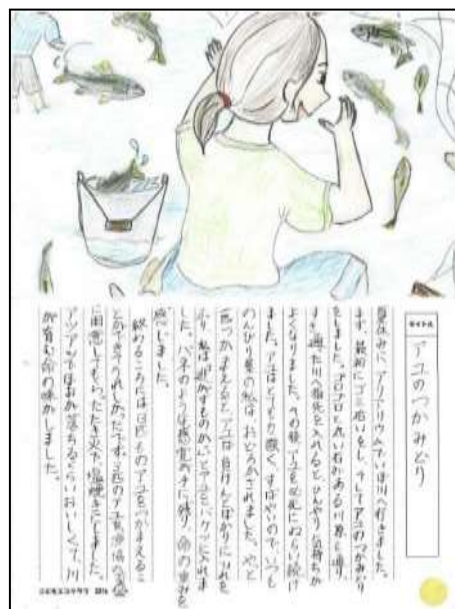 タイトル
アユのつかみどり
夏休みに、アクアリウムでいぼ川へ行きました。
まず、最初にゴミ拾いをし、そしてアユのつかみどり
をしました。ゴロゴロと丸い石がある川原を通り
すぎ、澄んだ川へ指先を入れるとひんやり気持ちが
よくなりました。その後、アユを必死にねらい続け
ました。アユはとても力強く、すばやいので、いつも
のんびり屋の私は、おどろかされました。やっと
一匹つかまえると、アユは負けんとばかりに
私は逃がすものかとアユをバケツに入れま
した。バネのような感覚が手に残り、命の重みを
感じました。
終わるころには、3匹ものアユをつかまえるこ
とができうれしかったです。3匹のアユを漁協の
に用意してもらったたき火で塩焼きにしました。
アツアツでほおが落ちるくらいおいしくて、川
が育む命の味がしました。
こどもエコクラブ